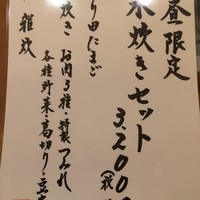 昼限定
水炊きセット
3.200
り田たまご
炊き お肉3種・特製つみれ
各種野菜・葛切り・豆
雑炊